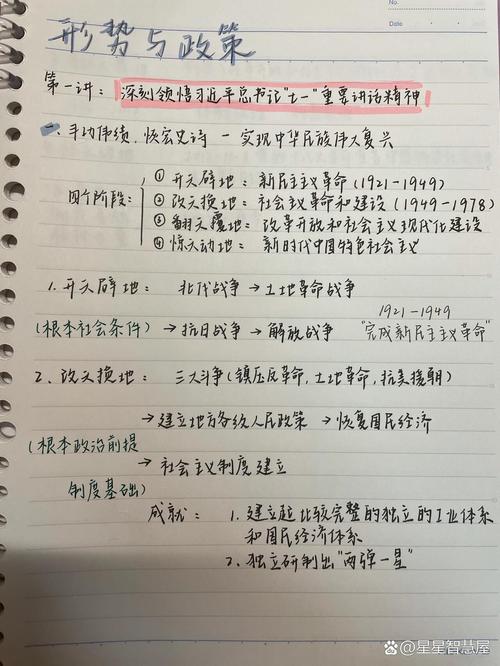 No.
Date
形势与政策
第一讲：深刻领悟习近平总书记"七一"重要讲话精神
一、丰功伟绩，恢宏史诗 — 实现中华民族伟大复兴
四个阶段：
① 开天辟地：新民主主义革命（1921-1949）
② 改天换地：社会主义革命和建设（1949-1978）
③ 翻天覆地：改革开放和社会主义现代化建设
④ 惊天动地：新时代中国特色社会主义
1. 开天辟地：北伐战争 → 土地革命战争
1921-1949
（根本社会条件）→ 抗日战争 → 解放战争 "完成新民主主义革命"
2. 改天换地：三大斗争（镇压反革命，土地革命，抗美援朝）
→ 建立地方各级人民政策 → 恢复国民经济
（根本政治前提
→ 社会主义制度建立
制度基础）
成就：1. 建立起比较完整的独立的工业体系
和国民经济体系
2. 独立研制出"两弹一星"
@星星智慧屋